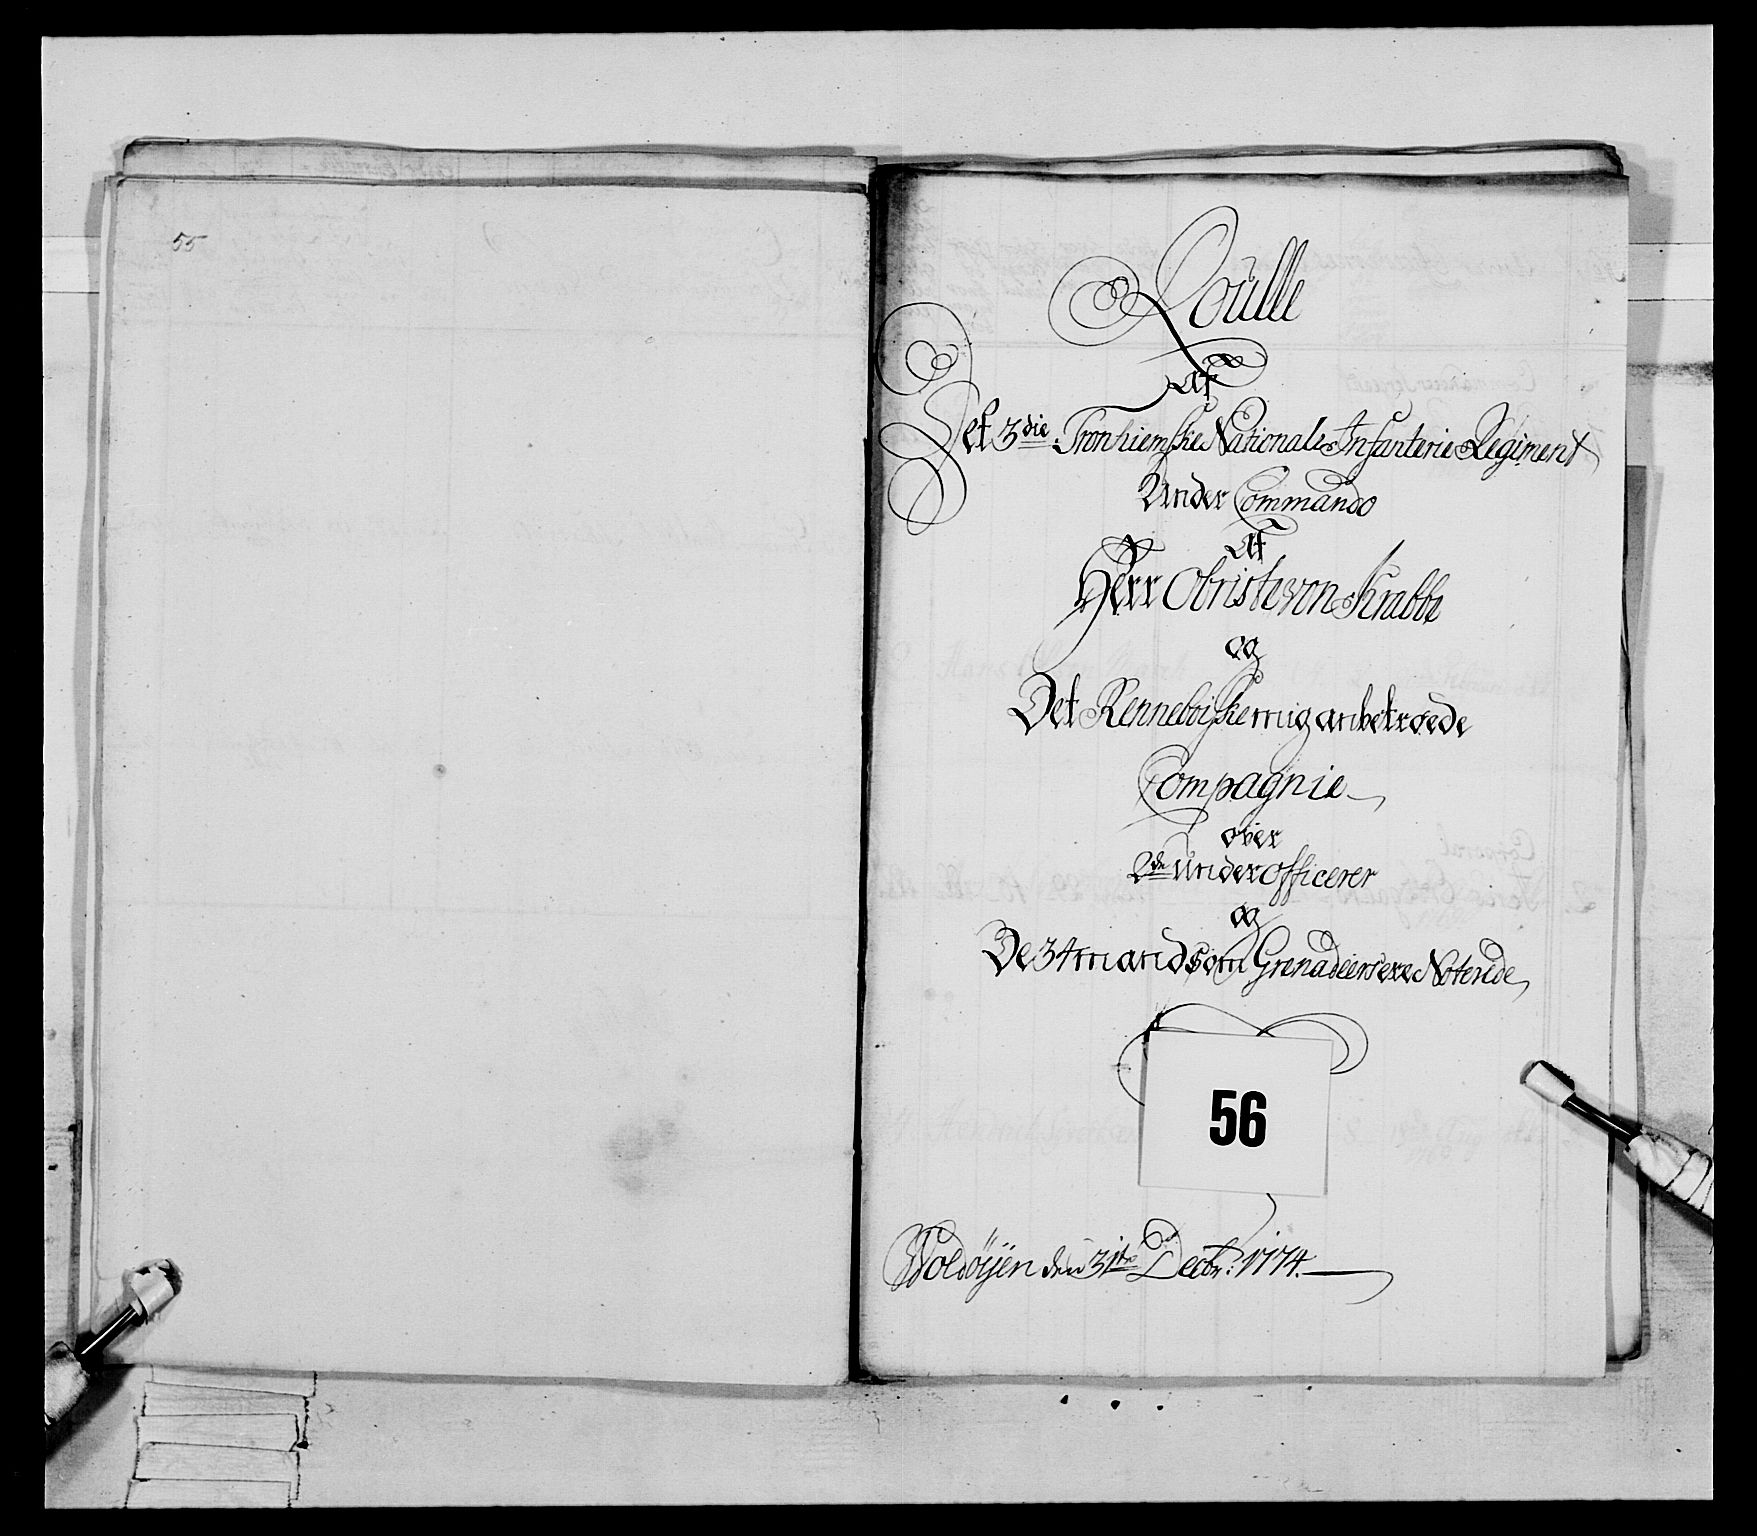 55
Roulle
Af
Det 3die Tronhiemske Nationale Infanterie Regiment
Under Commando
Af
Herr Obriste von Krabbe
og
Det Renneboiske mig anbetroede
Compagnie
over
2de Under Officerer
og
De 34 mand som Grenadeers ere Noterede
56
Woldøijen den 31te Decbr: 1774.